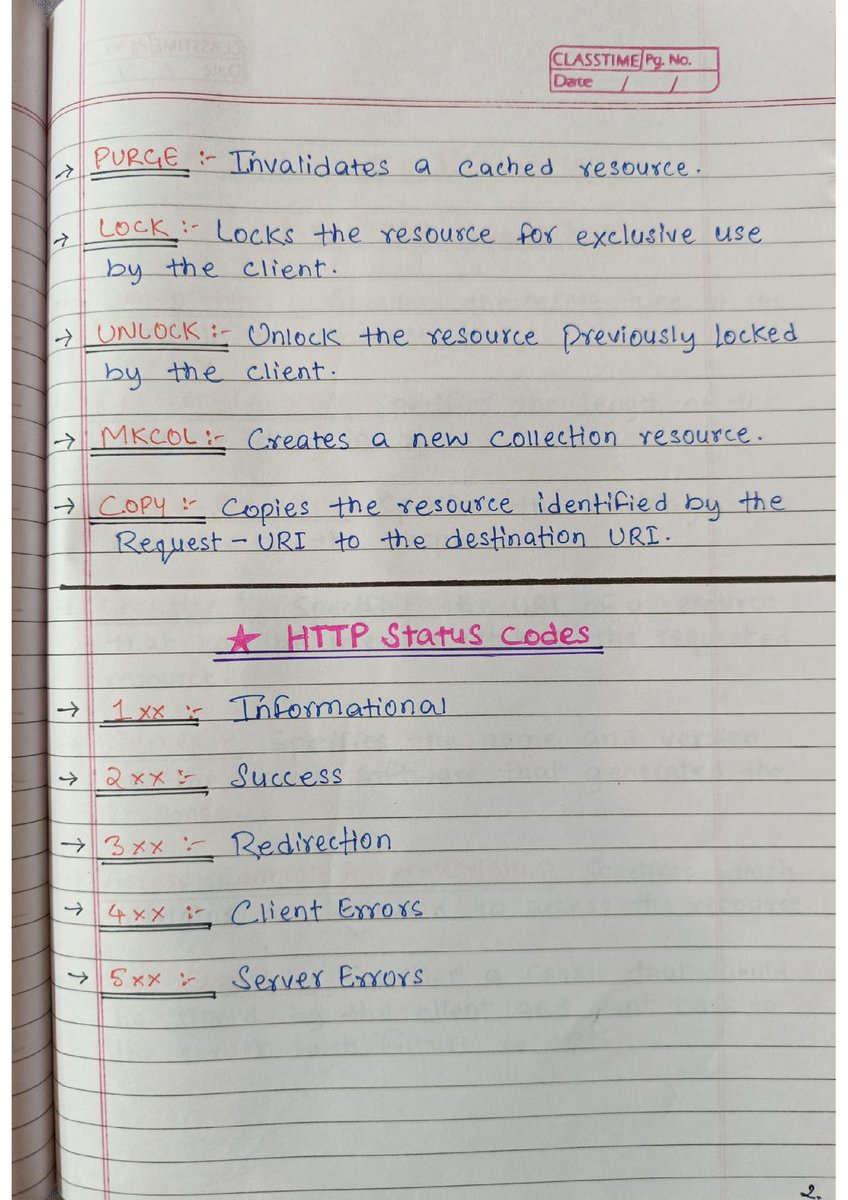 CLASSTIME Pg. No.
Date / /
→ PURGE :- Invalidates a cached resource.
→ LOCK :- Locks the resource for exclusive use
by the client.
→ UNLOCK :- Unlock the resource previously locked
by the client.
→ MKCOL :- Creates a new collection resource.
→ COPY :- Copies the resource identified by the
Request-URI to the destination URI.
★ HTTP Status Codes
→ 1xx :- Informational
→ 2xx :- Success
→ 3xx :- Redirection
→ 4xx :- Client Errors
→ 5xx :- Server Errors
2.